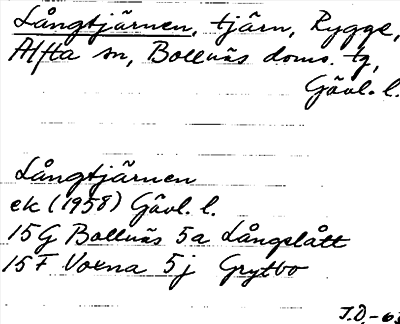 Långtjärnen, tjärn, Rygge,
Alfta sn, Bollnäs doms. tg,
Gävl. l.
Långtjärnen
ek (1958) Gävl. l.
15G Bollnäs 5a Långslått
15F Voxna 5j Grytbo
J.D. -63